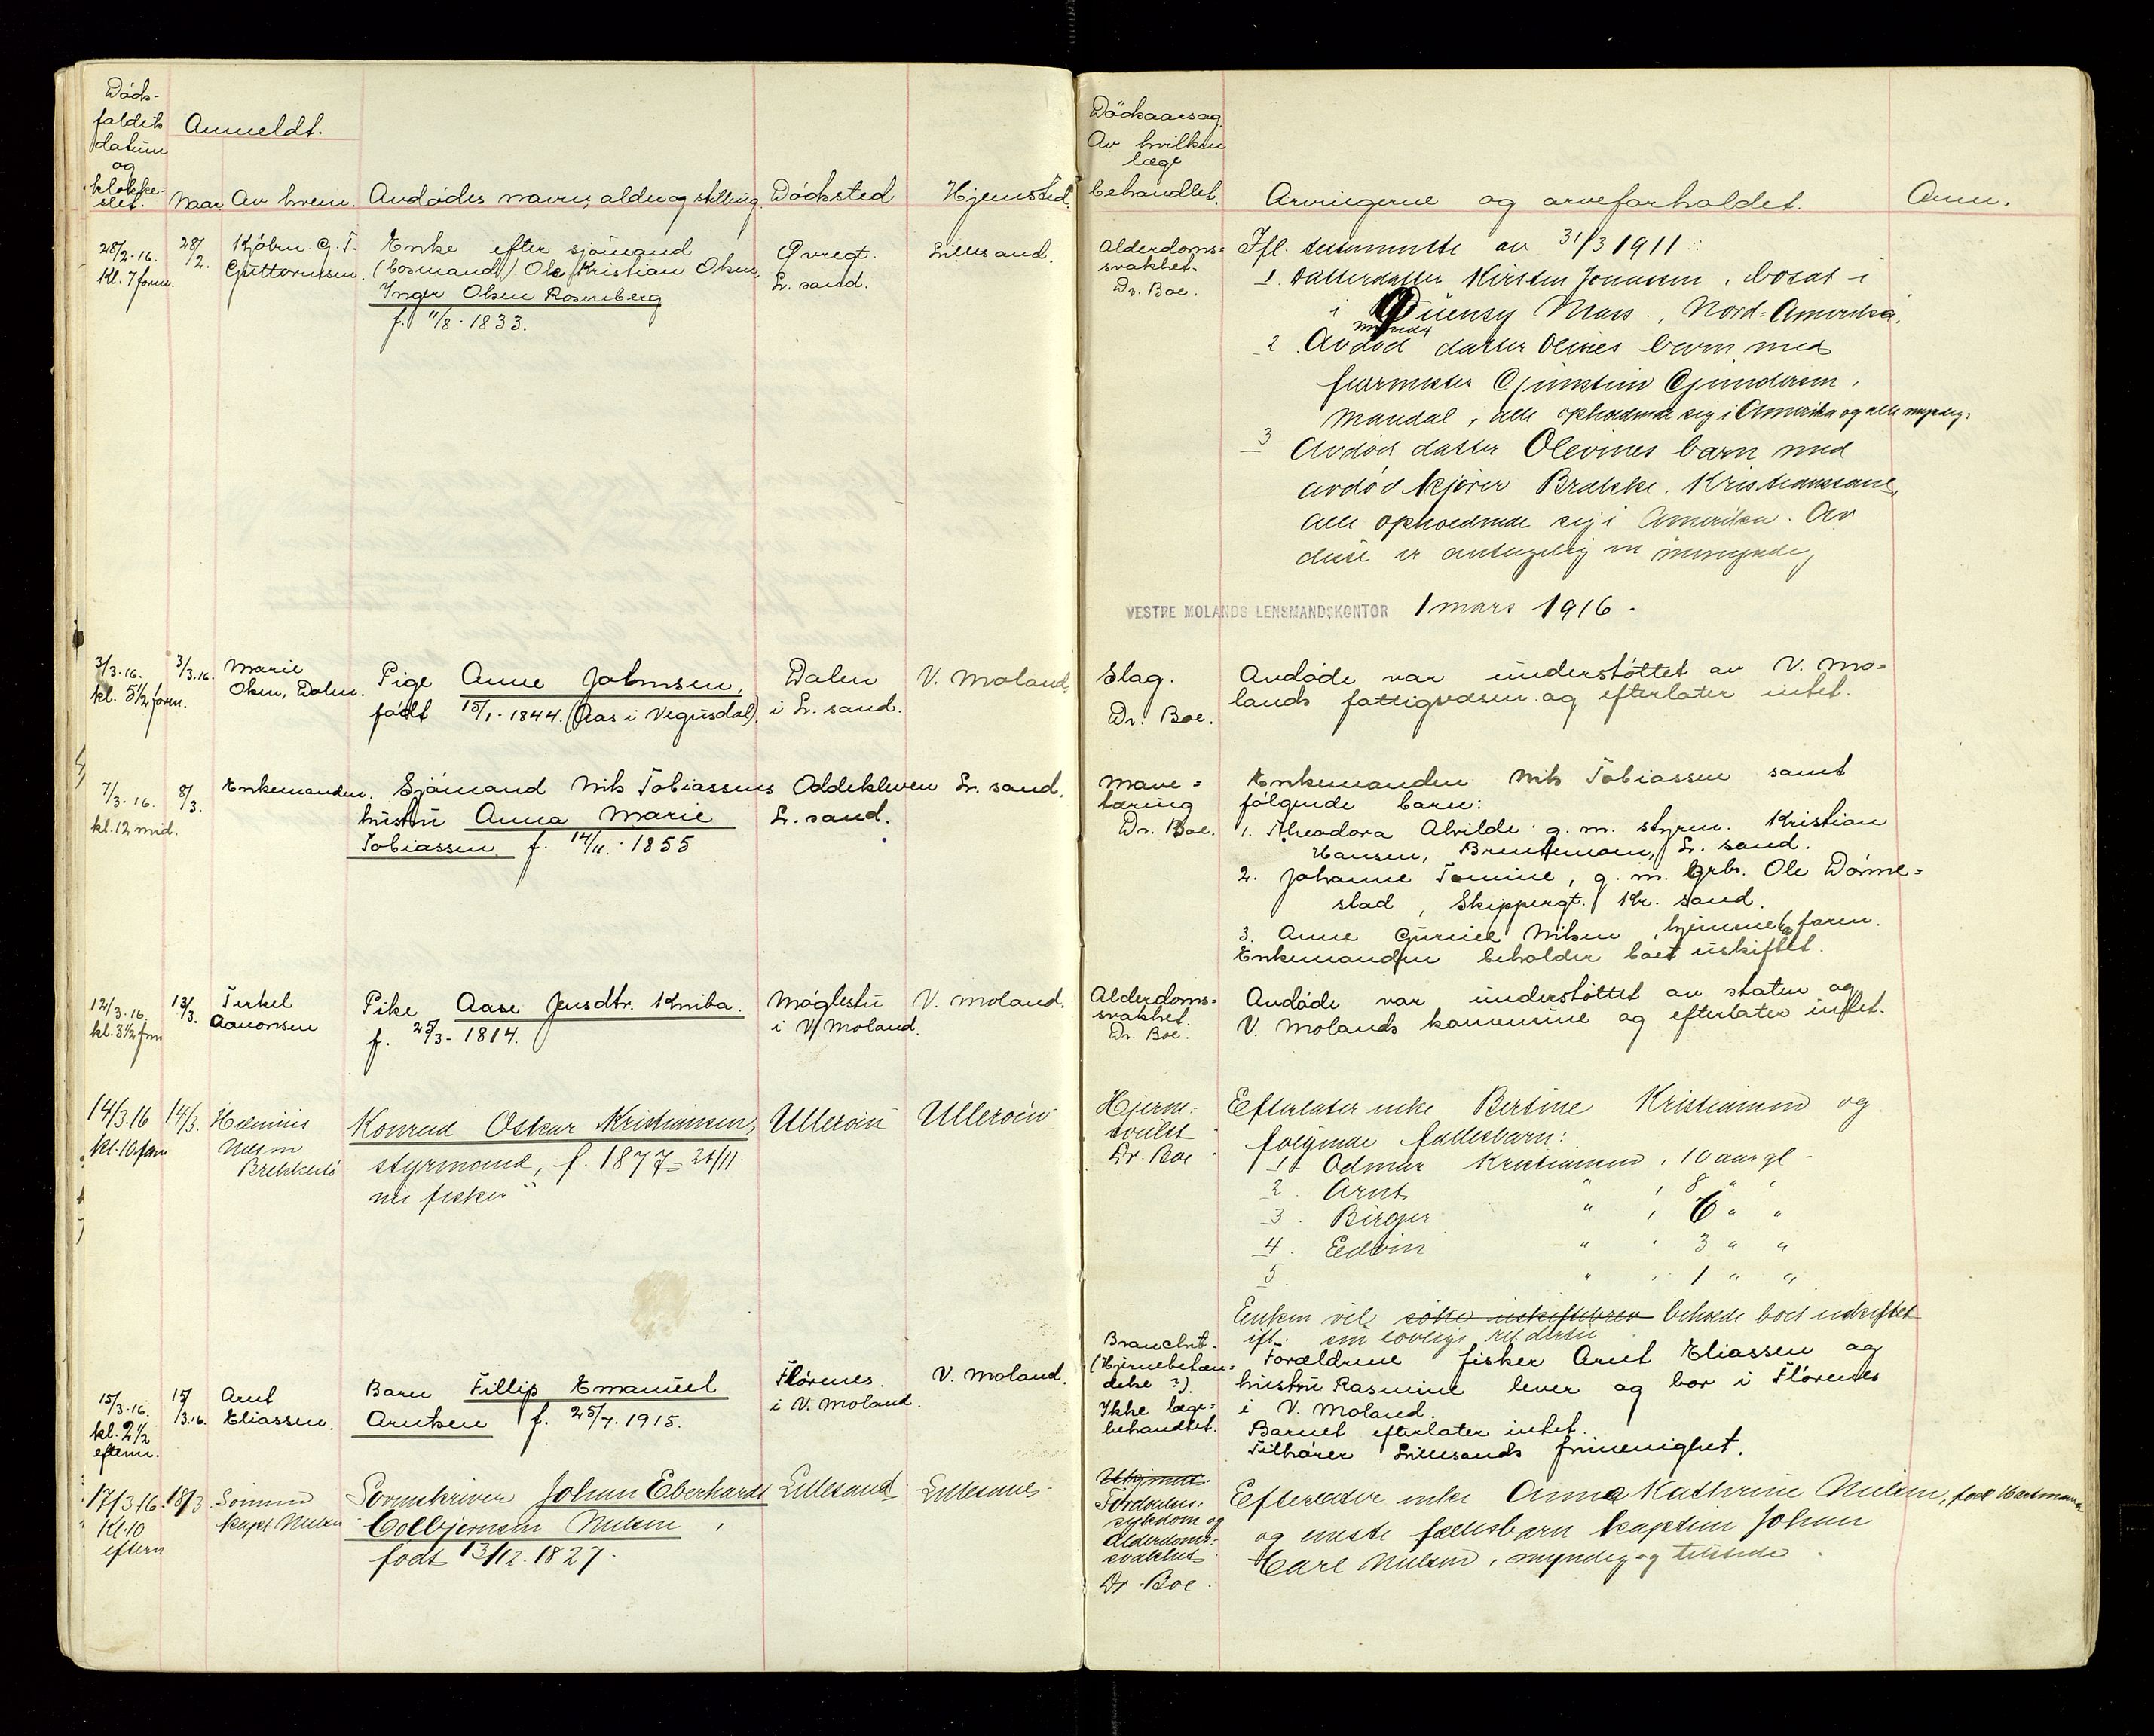 Döds-
faldets
datum
og
klokke-
slet.
Anmeldt.
Naar
Av hvem.
Avdödes navn, alder og stilling.
Dödssted
Hjemsted.
Dödsaarsag.
Av hvilken
læge
behandlet.
Arvingerne og arveforholdet.
Anm.
28/2-16.
Kl. 7 form.
28/2.
Kjöbm. G. T.
Guttormsen.
Enke efter sjömand
(bosmand) Ole Kristian Olsen,
Inger Olsen Rosenberg
f. 11/8-1833.
Övregt.
L. sand.
Lillesand.
Alderdoms-
svakhet.
Dr. Boe.
Ifl. testamente av 31/3 1911:
1. Datterdatter Kirsten Jonassen, bosat i
i Quensy Mass., Nord-Amerika.
2. Avdöd datter Olines barn med
Gunstein Gundersen,
Mandal, alle opholdende sig i Amerika og alle myndig-
3 Avdöd datter Olevines barn med
avdöd kjörer Brække. Kristianssand,
alle opholdende sig i Amerika. Av
disse er antagelig en umyndig
VESTRE MOLANDS LENSMANDSKONTOR 1 mars 1916.
3/3-16.
kl. 5 1/2 form.
3/3-16.
Marie
Olsen, Dalen.
Pige Anne Johnsen,
född 15/1-1844. (Aas i Vegusdal).
Dalen
i L. sand.
V. Moland.
Slag.
Dr. Boe.
Avdöde var understöttet av V. Mo-
lands fattigvæsen og efterlater intet.
7/3-16.
kl. 12 mid.
8/3.
Enkemanden.
Sjömand Nils Tobiassens
hustru Anna Marie
Tobiassen f. 14/11-1855
Oddekleven
L. sand.
L. sand.
Mave-
tæring
Dr. Boe.
Enkemanden Nils Tobiassen samt
fölgende barn:
1. Theodora Alvilde g. m. styrm. Kristian
Hansen, L. sand.
2. Johanne Tomine, g. m. Grbr. Ole Dönne-
stad, Skippergt. Kr. sand.
3. Anne Gurine Nilsen, hjemme hos faren.
Enkemanden beholder boet uskiftet.
12/3-16.
kl. 3 1/2 fm
13/3.
Terkel
Aanonsen
Pike Aase Jensdtr. Kniba.
f. 25/3-1814.
Möglestu
i V. Moland.
V. Moland.
Alderdoms-
svakhet.
Dr. Boe.
Avdöde var understöttet av staten og
V. Molands kommune og efterlater intet.
14/3.16
kl. 10 fm
14/3.
Nilsen
Brekkestö
Konrad Oskar Kristiansen,
styrmand, f. 1877-21/11.
nu fisker
Ulleröen
Ulleröen
Hjerne-
svulst
Dr. Boe
Efterlater enke Bertine Kristiansen og
fölgende fællesbarn:
1. Odmar Kristiansen, 10 aar gl.
2. Arnt " , 8 " "
3. Birger " , 6 " "
4. Edvin " , 3 " "
5. " , 1 " "
Enken vil söke uskiftebrev beholde boet uskiftet
ifl. sin lovlige ret dertil
15/3-16.
kl. 2 1/2
efterm.
15/3.16.
Arnt
Eliassen.
Barn Fillip Emanuel
Arntsen f. 25/7.1915.
Flörenes.
i V. Moland.
V. Moland.
(Hjernebetæn-
delse ?)
Ikke læge-
behandlet.
Forældrene fisker Arnt Eliassen og
hustru Rasmine lever og bor i Flörenes
i V. Moland.
Barnet efterlater intet.
Tilhörer Lillesands frimenighet.
17/3 16.
Kl. 10
eftern
18/3.
Sönnen
kapt Nielsen
Sorenskriver Johan Eberhardt
Colbjørnsen Nielsen,
født 13/12.1827.
Lillesand
Lillesand
sykdom og
Alderdoms-
svakhet
Dr. Boe.
Efterlader enke Anna Kathrine Nielsen, född Hartmann
og eneste fællesbarn kaptein Johan
Carl Nielsen, myndig og tilstede.